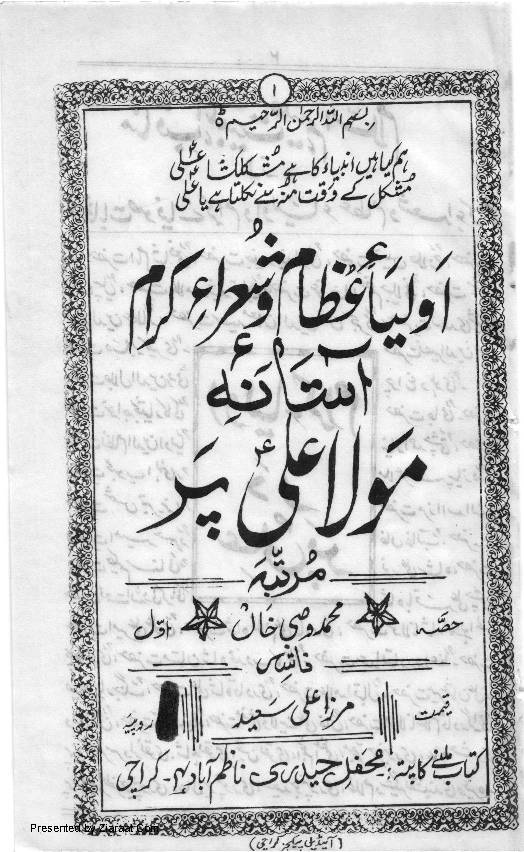 ۱
بسم اللہ الرحمن الرحیم ہ
ہم کیا ہیں انبیاء کا ہے مشکلکشا علیؑ
مشکل کے وقت منہ سے نکلتا ہے یا علیؑ
اولیأ عظام و شعراءِ کرام
آستانۂ
مولا علیؑ پر
مرتبہ
حصہ محمد وصی خاں اوّل
ناشر
مرزا علی سعید
قیمت روپیہ
کتاب ملنے کا پتہ:۔ محفل حیدری ناظم آباد ۴۔ کراچی
Presented by Ziaraat.Com